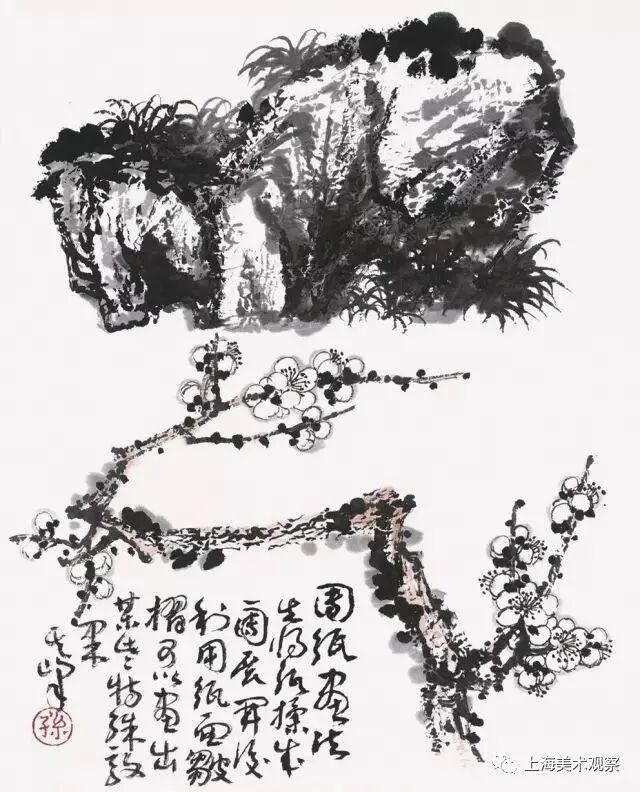 團紙畫法
先將紙揉成
團展開後
利用紙面皺
摺可以畫出
某些特殊效
果
其峰
孫
上海美术观察